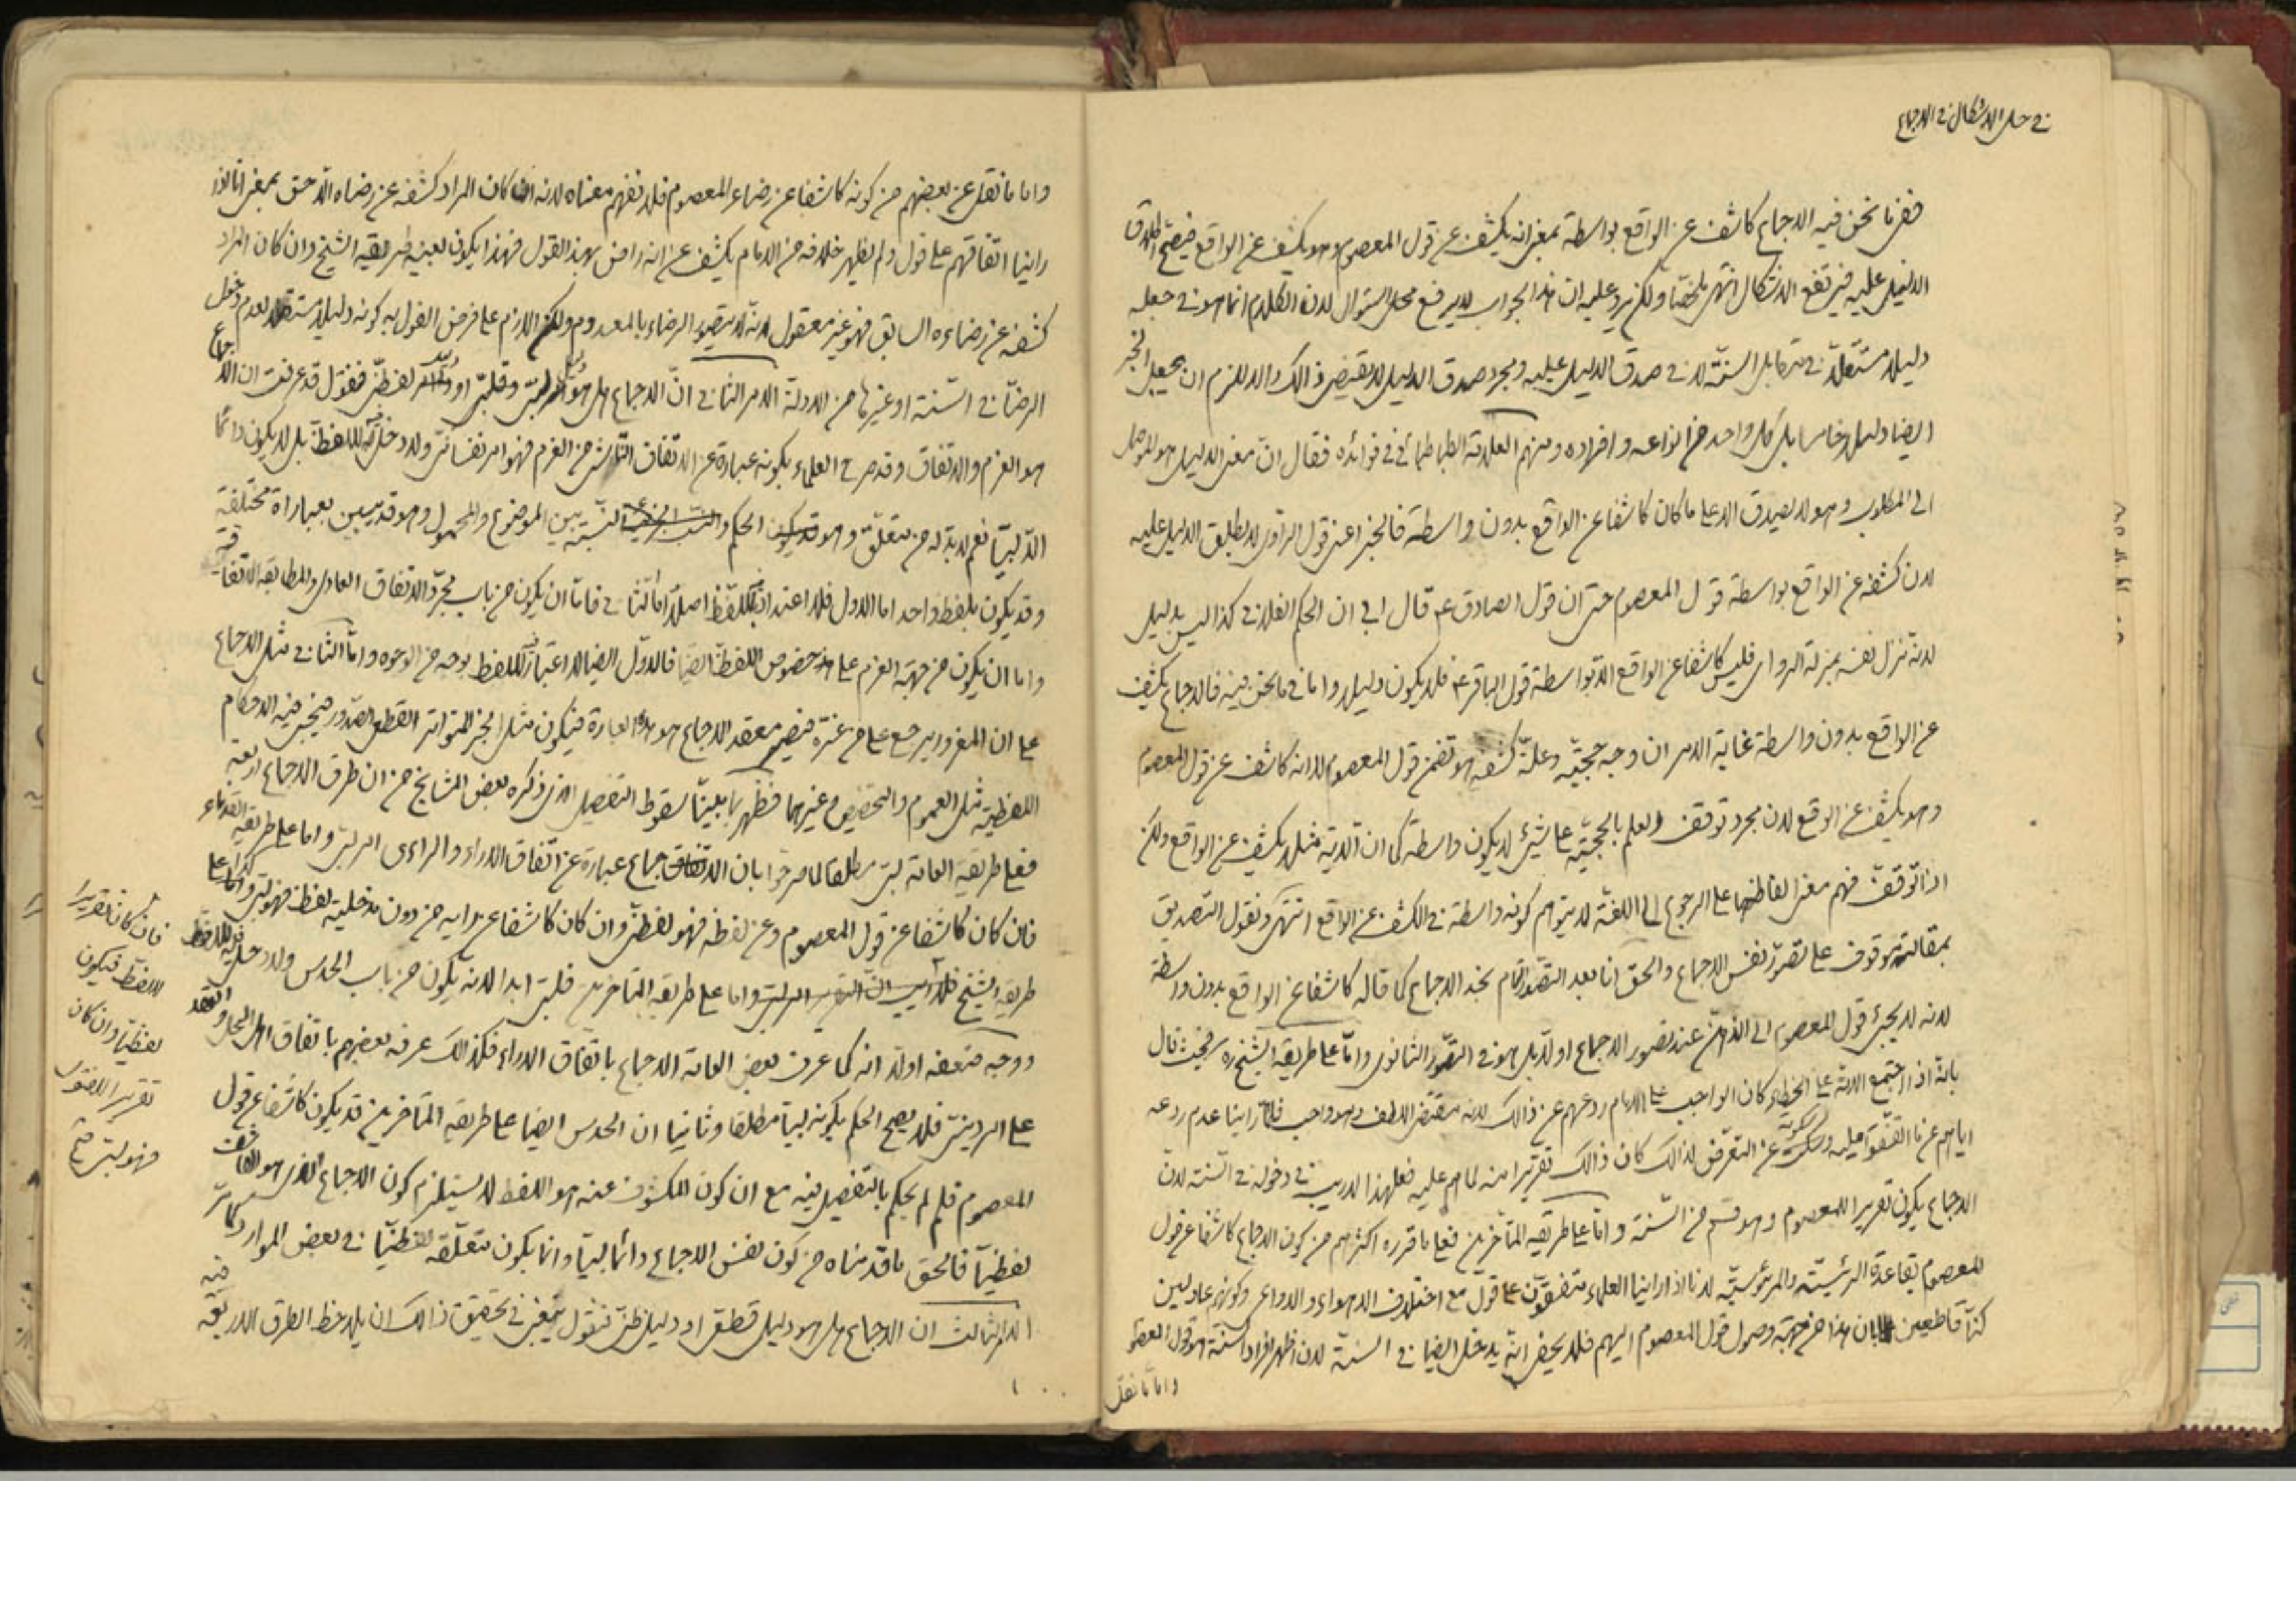 في حل الاشكال في الاجماع
ففيما نحن فيه الاجماع كاشف عن الواقع بواسطة بمعنى انه يكشف عن قول المعصوم وهو يكشف عن الواقع فيصح اطلاق
الدليل عليه فيرتفع الاشكال انتهى ملخصا ولكن يرد عليه ان هذا الجواب لا يرفع محل السؤال لان الكلام انما هو في جعله
دليلا مستقلا في مقابل السنة لا في صدق الدليل عليه ومجرد صدق الدليل لا يقتضي ذالك والا للزم ان يجعل الخبر
ايضا دليلا خامسا بل كل واحد من انواعه وافراده ومنهم العلامة الطباطبائي في فوائده فقال ان معنى الدليل هو الموصل
الى المطلوب وهو لا يصدق الا على ما كان كاشفا عن الواقع بدون واسطة فالخبر اعني قول الراوي لا يطلق الدليل عليه
لان كشفه عن الواقع بواسطة قول المعصوم حتى ان قول الصادق ع قال ابي ان الحكم الفلاني كذا ليس بدليل
لانه تنزل نفسه بمنزلة الراوي فليس كاشفا عن الواقع الا بواسطة قول الباقر ع فلا يكون دليلا واما في ما نحن فيه فالاجماع يكشف
عن الواقع بدون واسطة غاية الامر ان وجه حجيته وعلة كشفه هو تضمن قول المعصوم لا انه كاشف عن قول المعصوم
وهو يكشف عن الواقع لان مجرد توقف العلم بالحجية على شيء لا يكون واسطة كما ان الاية مثلا يكشف عن الواقع ولكن
اذا توقف فهم معنى الفاظها على الرجوع الى اللغة لا يتوهم كونه واسطة في الكشف عن الواقع انتهى ونقول التصديق
بمقالته موقوف على تصور نفس الاجماع والحق انا بعد التصور التام نجد الاجماع كما قاله كاشفا عن الواقع بدون واسطة
لانه لا يجيء قول المعصوم الى الذهن عند تصور الاجماع اولا بل هو في التصور الثانوي واما على طريقة الشيخ ره فحيث قال
بانه اذا اجتمع الامة على الخطاء كان الواجب على الامام ردعهم عن ذالك لانه مقتضى اللطف وهو واجب فلما راينا عدم ردعه
اياهم عن ما اتفقوا عليه وسكوته عن التعرض لذالك كان ذالك تقريرا منه لما هم عليه فعلى هذا لا ريب في دخوله في السنة لان
الاجماع يكون تقريرا للمعصوم وهو قسم من السنة واما على طريقة المتاخرين فعلى ما قرره اكثرهم من كون الاجماع كاشفا عن قول
المعصوم بقاعدة الرئيسية والمرؤسية لانا اذا راينا العلماء متفقون على قول مع اختلاف الاهواء والدواعي وكونهم عادلين
كنا قاطعين بان هذا من جهة وصول قول المعصوم اليهم فلا يخفى انه يدخل ايضا في السنة لان اظهر افراد السنة هو قول المعصوم
واما ما نقل
واما ما نقل عن بعضهم من كونه كاشفا عن رضاء المعصوم فلا نفهم معناه لانه ان كان المراد كشفه عن رضاه اللاحق بمعنى انا اذا
راينا اتفاقهم على قول ولم يظهر خلافه من الامام يكشف عن انه راض بهذا القول فهذا يكون بعينه طريقة الشيخ وان كان المراد
كشفه عن رضاءه السابق فهو غير معقول لانه لا يتصور الرضاء بالمعدوم ولكن اللازم على فرض القول به كونه دليلا مستقلا لعدم دخول
الرضا في السنة او غيرها من الادلة الامر الثاني ان الاجماع هل هو دليل لبي وقلبي او لفظي فنقول قد عرفت ان الاجماع
هو العزم والاتفاق وقد صرح العلماء بكونه عبارة عن الاتفاق الناشي من العزم فهو امر نفساني ولا دخل فيه للفظ بل لا يكون دائما
الا لبيا نعم لا بد له من متعلق وهو الحكم والنسبة بين الموضوع والمحمول وهو قد يبين بعباراة مختلفة
وقد يكون بلفظ واحد اما الاول فلا اعتداد باللفظ اصلا اما الثاني فاما ان يكون من باب مجرد الاتفاق العادي والمطابقة الاتفاقية
واما ان يكون من جهة العزم على خصوص اللفظ ايضا فالاول ايضا لا اعتبار للفظ بوجه من الوجوه واما الثاني مثل الاجماع
على ان المغرور يرجع على من غره فيصير معقد الاجماع هو هذه العبارة فيكون مثل الخبر المتواتر القطعي الصدور فيجري فيه الاحكام
اللفظية مثل العموم والتخصيص وغيرهما فظهر بما بينا سقوط التفصيل الذي ذكره بعض المشايخ من ان طرق الاجماع اربعة
فعلى طريقة العامة لبي مطلقا لما صرحوا بان الاجماع عبارة عن اتفاق الاراء والراءى امر لبي واما على طريقة القدماء
فان كان كاشفا عن قول المعصوم وعن لفظه فهو لفظي وان كان كاشفا عن رايه من دون مدخلية لفظ فهو لبي وكذا على
طريقة الشيخ واما على طريقة المتاخرين فلبي ابدا لانه يكون من باب الحدس ولا دخل فيه للفظ
ووجه ضعفه اولا انه كما عرف بعض العامة الاجماع باتفاق الاراء فكذالك عرفه بعضهم باتفاق اهل الحل والعقد
على امر ديني فلا يصح الحكم بكونه لبيا مطلقا وثانيا ان الحدس ايضا على طريقة المتاخرين قد يكون كاشفا عن قول
المعصوم فلم لم يحكم بالتفصيل فيه مع ان كون المكشوف عنه هو اللفظ لا يستلزم كون الاجماع الذي هو الكاشف
لفظيا فالحق ما قدمناه من كون نفس الاجماع دائما لبيا وانما يكون متعلقه لفظيا في بعض الموارد كما مر
الامر الثالث ان الاجماع هل هو دليل قطعي او دليل ظني فنقول ينبغي في تحقيق ذالك ان يلاحظ الطرق الاربعة
فيه
فان كان تقريرا
للفظ فيكون
لفظيا وان كان
تقريرا للفتوى
فهو لبي